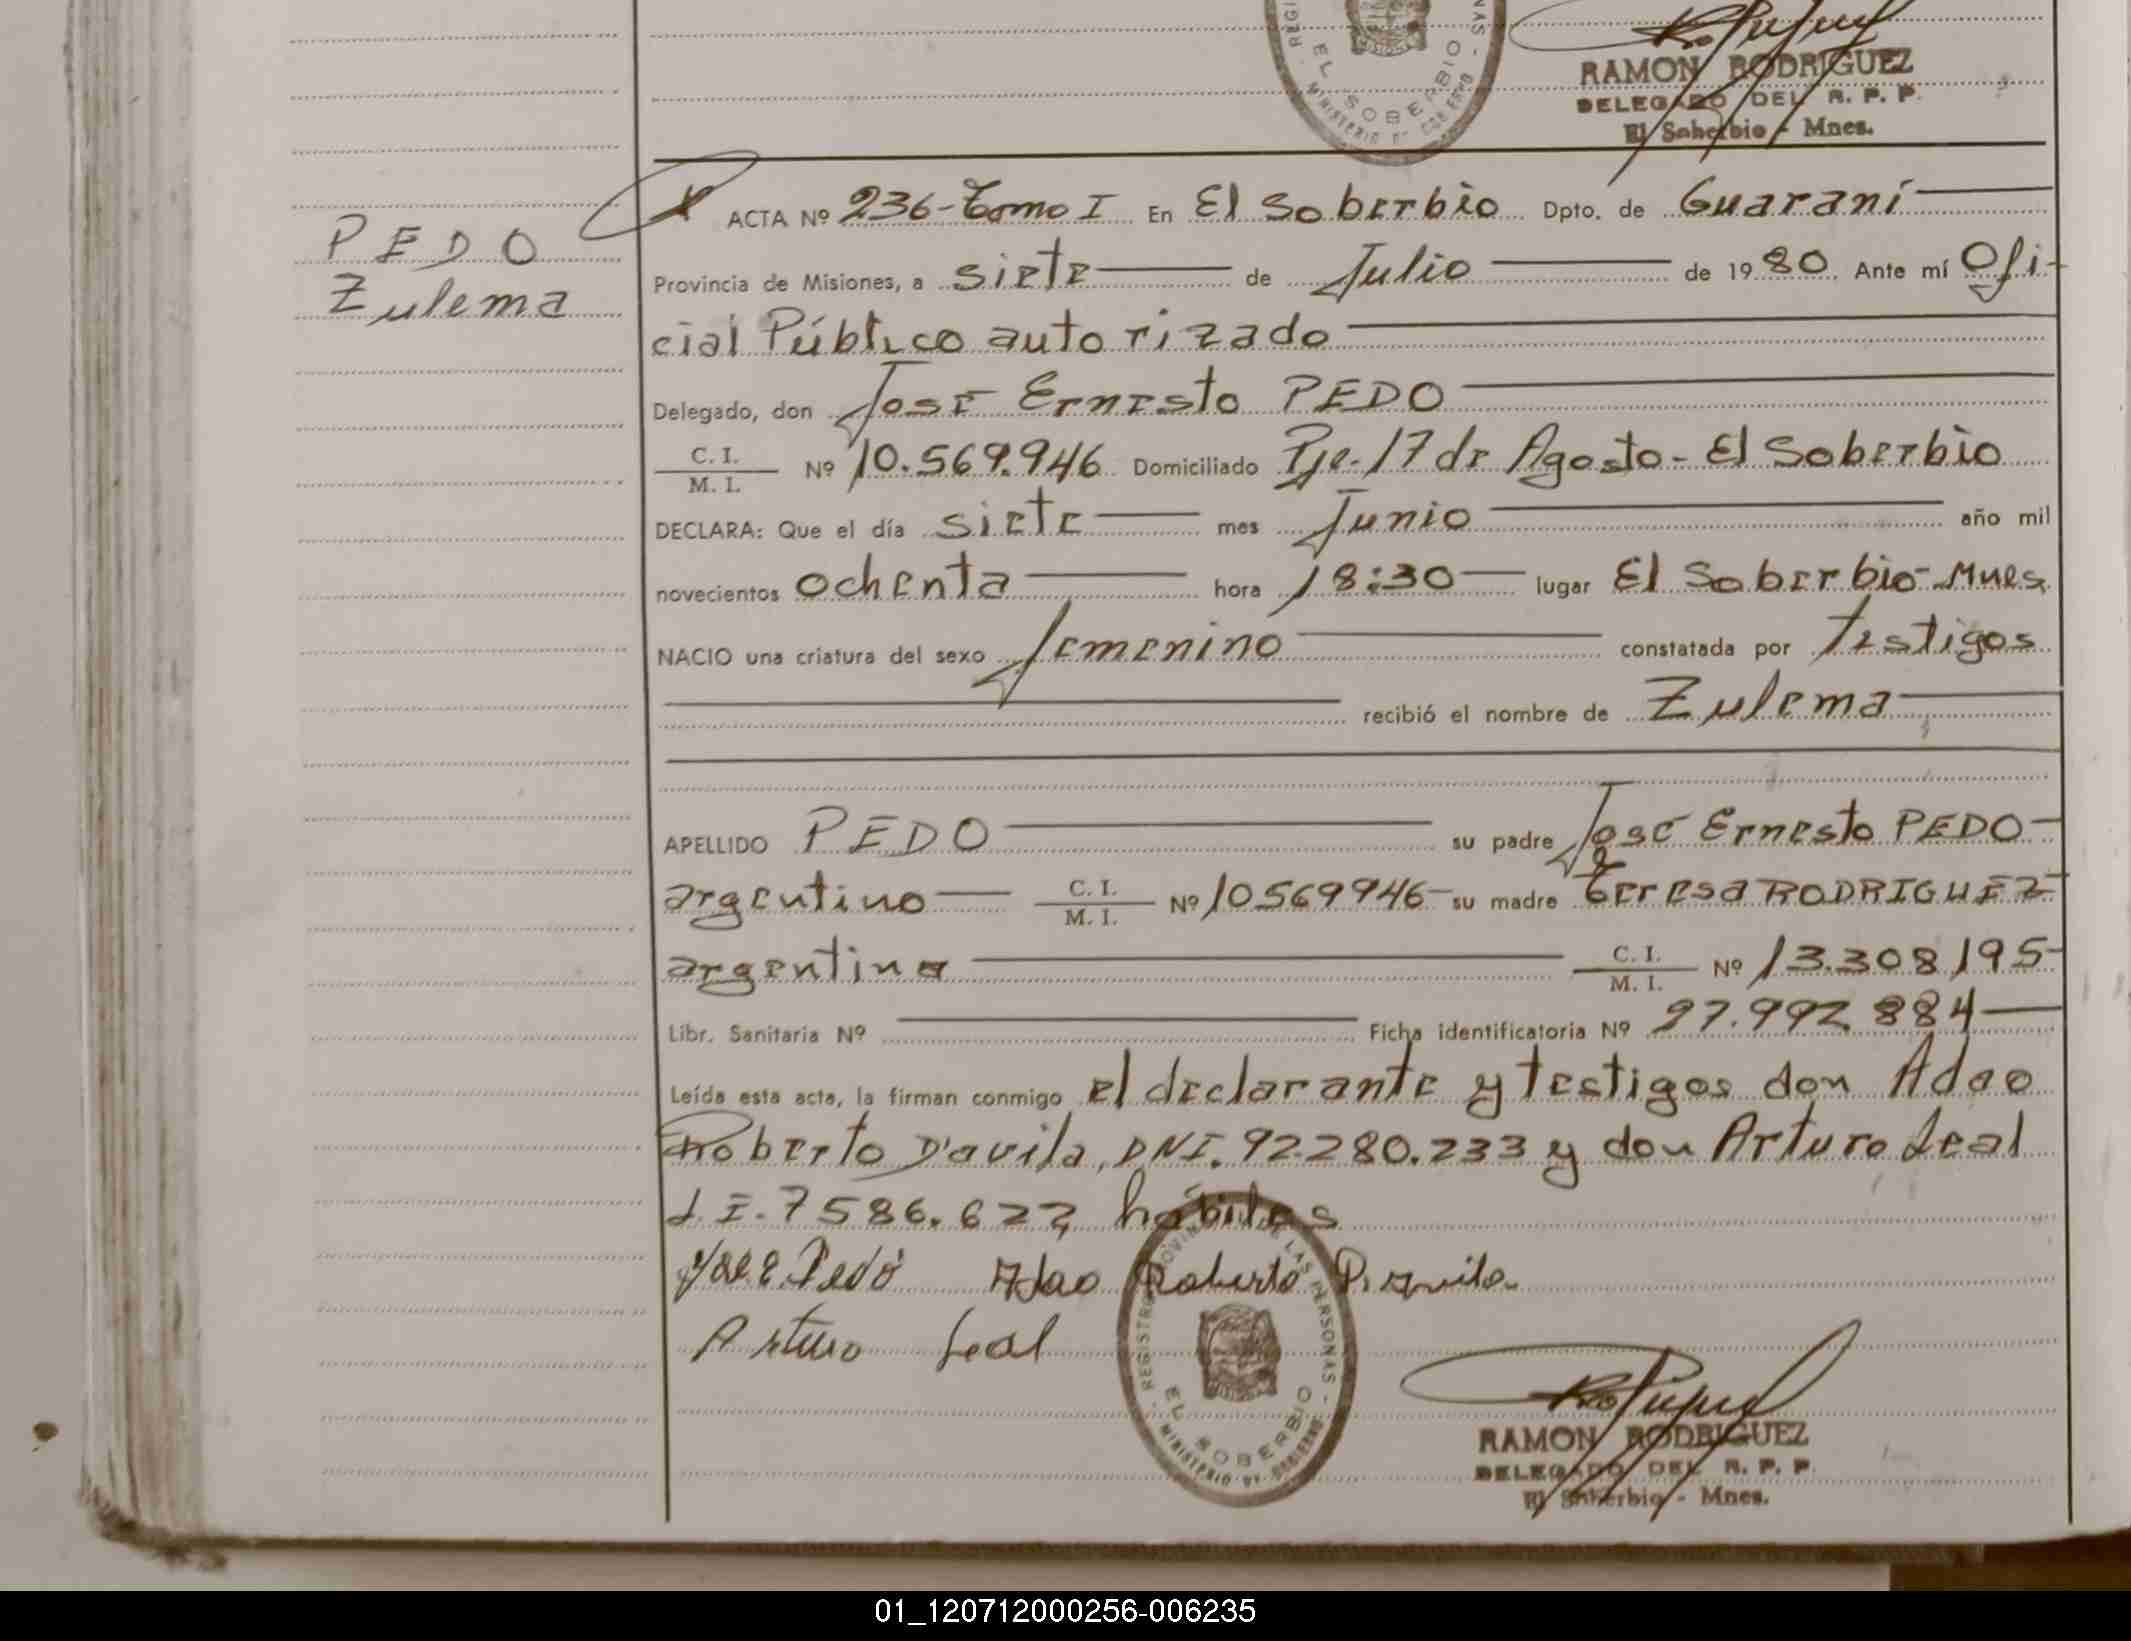 REGISTRO EL SOBERBIO - MINISTERIO DE GOBIERNO -
RAMON RODRIGUEZ
DELEGADO DEL R. P. P.
El Soberbio - Mnes.
PEDO
Zulema
ACTA Nº 236-Tomo I En El Soberbio Dpto. de Guaraní
Provincia de Misiones, a siete de Julio de 1980. Ante mí Ofi-
cial Público autorizado
Delegado, don José Ernesto PEDO
C. I. / M. I. Nº 10.569.946 Domiciliado Pje. 17 de Agosto - El Soberbio
DECLARA: Que el día siete mes Junio año mil
novecientos ochenta hora 18:30 lugar El Soberbio-Mnes.
NACIO una criatura del sexo femenino constatada por testigos
recibió el nombre de Zulema
APELLIDO PEDO su padre José Ernesto PEDO
argentino C. I. / M. I. Nº 10569946 su madre Teresa RODRIGUEZ
argentina C. I. / M. I. Nº 13.308195
Libr. Sanitaria Nº Ficha identificatoria Nº 27.992.884
Leída esta acta, la firman conmigo el declarante y testigos don Adao
Roberto D'avila, DNI. 92.280.233 y don Arturo Leal
L.E. 7586.622 hábiles
José E. Pedó Adao Roberto D. avila
Arturo Leal
REGISTRO PROVINCIAL DE LAS PERSONAS - EL SOBERBIO - MINISTERIO DE GOBIERNO -
RAMON RODRIGUEZ
DELEGADO DEL R. P. P.
El Soberbio - Mnes.
01_120712000256-006235